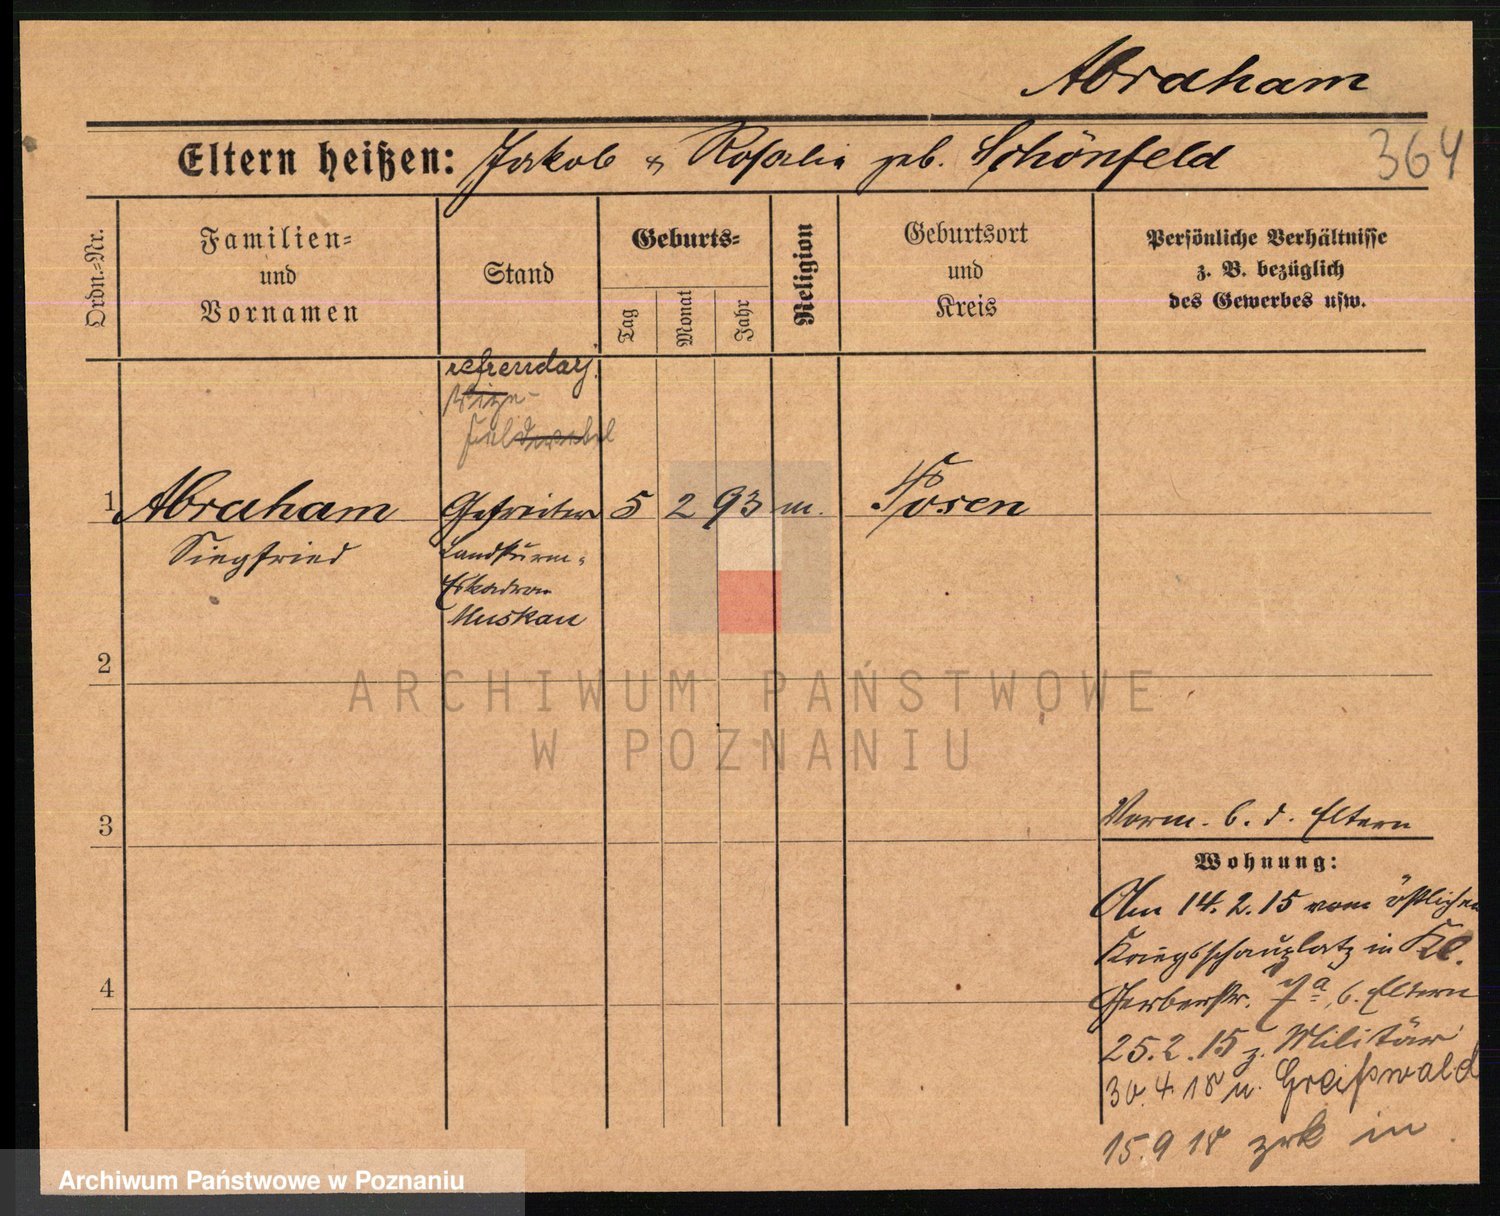 Abraham
Eltern heißen: Jakob & Rosalie geb. Schönfeld
364
Ordn.=Nr.
Familien=
und
Vornamen
Stand
Geburts=
Tag
Monat
Jahr
Religion
Geburtsort
und
Kreis
Persönliche Verhältnisse
z. B. bezüglich
des Gewerbes usw.
referendar
Vize-
feldwebel
1 Abraham Gefreiter 5 2 93 m. Posen
Siegfried Landsturm-
Eskadron
Muskau
2
ARCHIWUM PAŃSTWOWE
W POZNANIU
3
Vorm. b. d. Eltern
Wohnung:
Am 14.2.15 vom östlichen
Kriegsschauplatz in Kl.
4
Gerberstr. 7a, b. Eltern
25.2.15 z. Militär
30.4.18 n. Greifswald
15.9 18 zrk in
Archiwum Państwowe w Poznaniu